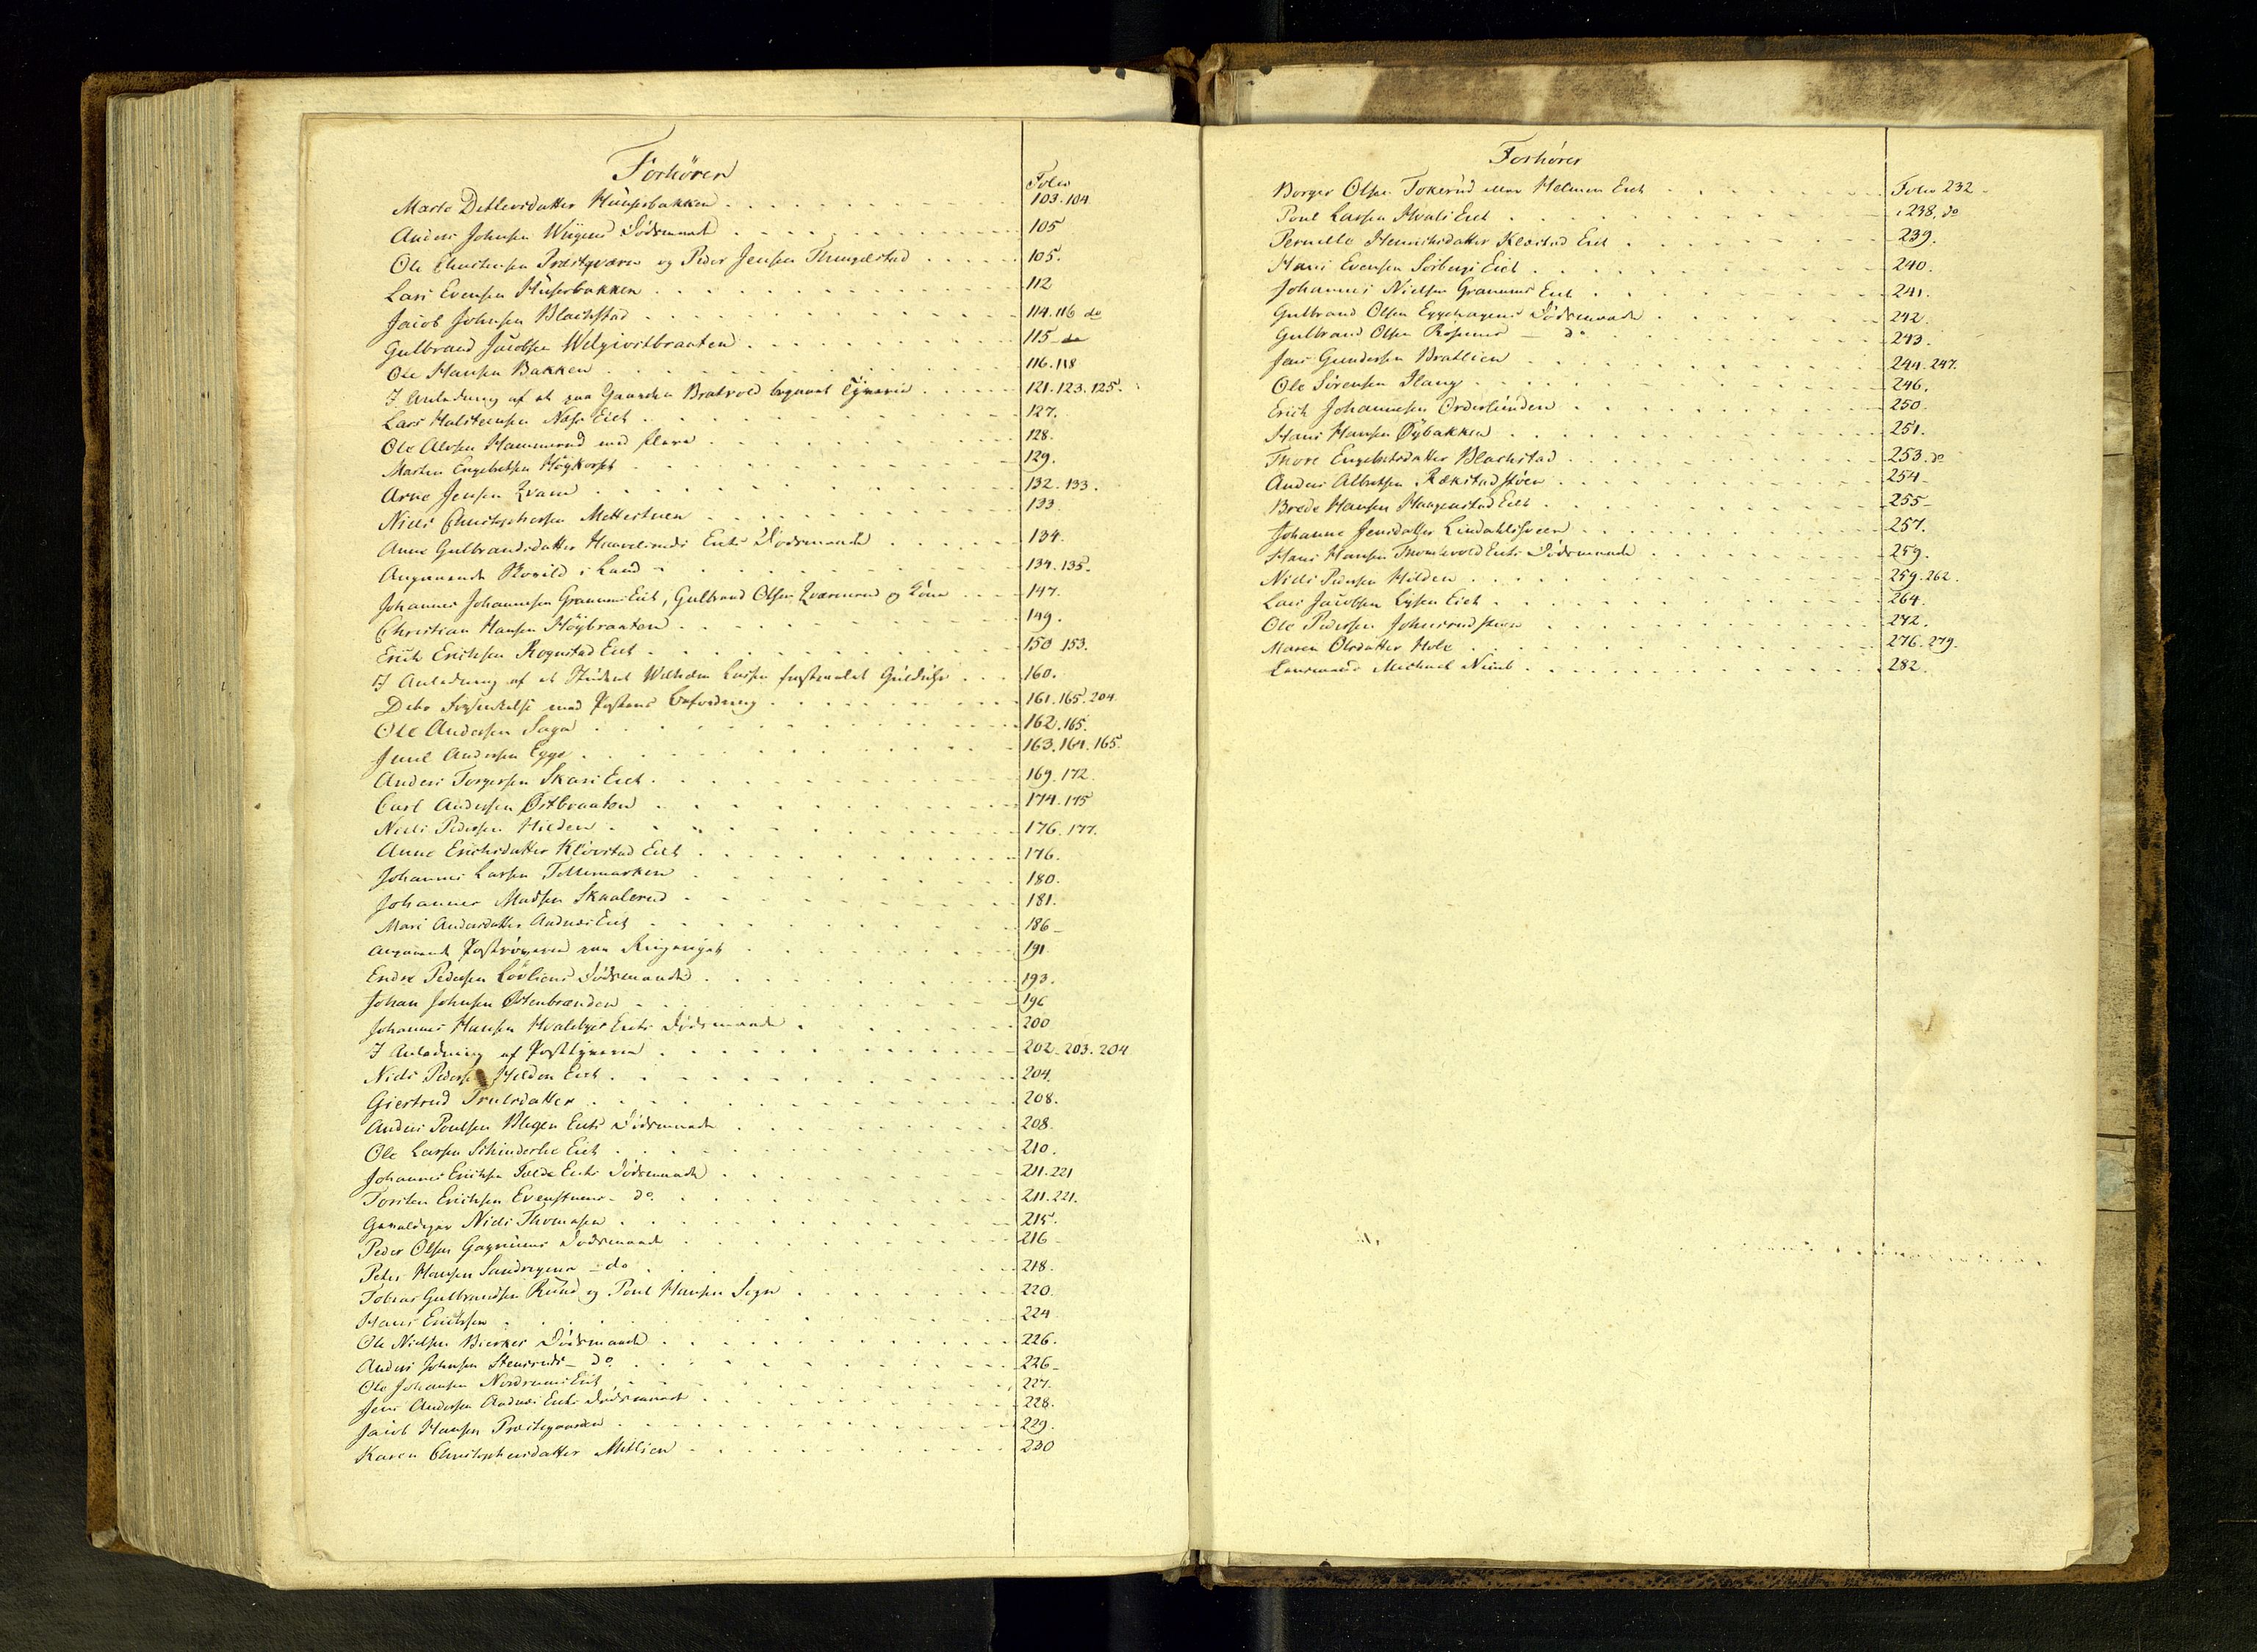 Forhörer
Folio
Marte Detlevsdatter Hünsebakken 103. 104
Anders Johnsen Dödsmaade 105
Ole Christensen Præstqværn og Peder Jensen Thingelstad 105.
Lars Evensen Hüsebakken 112
Jacob Johnsen Blachstad 114. 116 do
Gulbrand Jacobsen Welgivitbraaten 115
Ole Hansen Bakken 116. 118
I Anledning af et paa Gaarden Bratvold begaaet Tÿverie 121. 123. 125.
Lars Halsteensen Næss Eiet 127.
Ole Alvsen Hammerud med flere 128.
Morten Engebretsen Höykorset 129.
Arne Jensen Qvam 132. 133.
Niels Christophersen Mettestuen 133
Anne Gulbrandsdatter Eiets Dödsmaade 134.
Angaaende Ildebrand i Land 134. 135.
Johannes Johannesen Grannes Eiet, Gulbrand Olsen Qværnerud og Kone 147.
Christian Hansen Höybraaten 149.
Erich Erichsen Rognstad Eiet 150 153.
I Anledning af et Student Wilhelm Lassen frastjaalet Guldühr 160.
Dito Forsinkelse med Postens Befordring 161. 165. 204
Ole Andersen Saga 162. 165.
Juul Andersen Egge 163. 164. 165.
Anders Torgersen Skars Eiet 169. 172.
Carl Andersen Østbraaten 174. 175
Niels Pedersen Hilden 176. 177.
Anne Erichsdatter Klövstad Eiet 176.
Johannes Larsen Tellemarken 180.
Johannes Madsen Skaalerud 181.
Mari Andersdatter Aadnæs Eiet 186
angaaende Poströveried paa Ringeriget 191
Endre Pedersen Lövliens Dödsmaade 193.
Johan Johnsen Østenbrænden 196
Johannes Hansen Hvalebyes Eiets Dödsmaade 200
I Anledning af Posttyverie 202. 203. 204
Niels Pedersen Hilden Eiet 204.
Giertrud Trulsdatter 208.
Anders Poulsen Blegen Eiets Dödsmaade 208.
Ole Larsen Schinderlie Eiet 210.
Johannes Erichsen Eiets Dödsmaade 211. 221
Torsten Erichsen Evenstuens do 211. 221.
Gevaldiger Niels Thomasen 215.
Peder Olsen Dödsmaade 216
Peter Hansen do 218.
Tobias Gulbrandsen Rüud og Poul Hansen Sogn 220.
Hans Erichsen 224
Ole Nielsen Bierkes Dödsmaade 226.
Anders Johnsen Steensruds do 226
Ole Johansen Nordrums Eiet 227.
Jens Andersen Aadnæs Eiets Dödsmaade 228.
Jacob Hansen Præstegaarden 229.
Karen Christophersdatter Mitlien 230
Forhörer
Borger Olsen Tokerud eller Helmen Eiet Folio 232
Poul Larsen Hvals Eiet 238. do
Pernille Henrichsdatter Klæstad Eiet 239.
Hans Evensen Sörbergs Eiet 240.
Johannes Nielsen Grannes Eiet 241.
Gulbrand Olsen Eggehagens Dödsmaade 242.
Gulbrand Olsen do 243.
Jens Gundersen Bratlien 244. 247.
Ole Sörensen Ilang 246.
Erich Johannesen Ordersünden 250.
Hans Hansen Öÿbakken 251.
Thore Engebretsdatter Blachstad 253. do
Anders Albretsen Rækstadstöen 254
Brede Hansen Haagenstad Eiet 255
Johanne Jensdatter Lindahlsveen 257.
Hans Hansen Thomlevold Eiets Dödsmaade 259.
Niels Pedersen Hilden 259. 262.
Lars Jacobsen Lysen Eiet 264.
Ole Pedersen 272.
Maren Olsdatter Hole 276. 279.
Lensmand Michael Nimb 282.